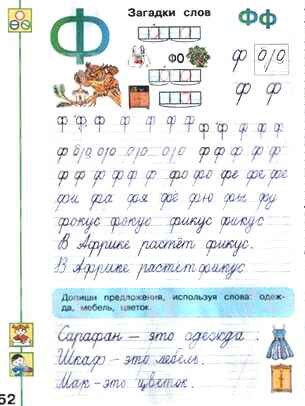 Загадки слов
Ф
Фф
ФО
ф о/о
ф ф
ф ф ф ф ф ф ф ф ф ф ф
ф о/о о/о о/о о/о ф ф ф ф ф
ф ф ф ф ф ф фо фо фе фе фе
фи фа фя фе фю фы фу
фокус фокус фикус фикус
В Африке растёт фикус.
В Африке растет фикус
Допиши предложения, используя слова: одеж-
да, мебель, цветок.
Сарафан – это одежда.
Шкаф – это мебель.
Мак – это цветок.
52